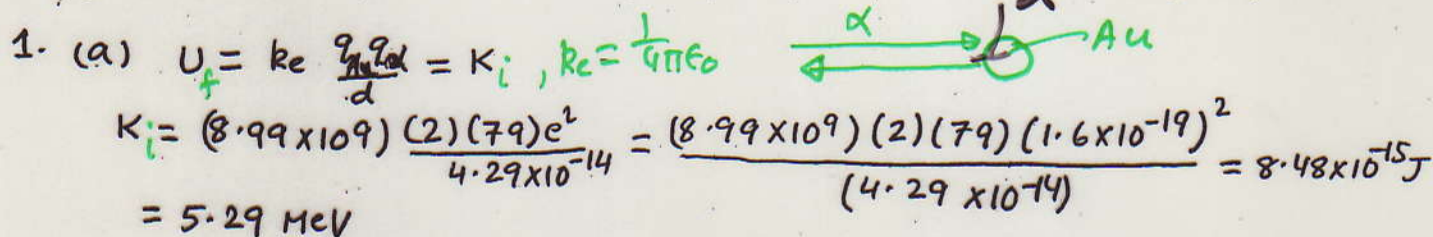 1. (a) U_f = ke q_Au q_α / d = K_i , ke = 1/4πϵ₀ α Au
K_i = (8.99×10⁹) (2)(79)e² / 4.29×10⁻¹⁴ = (8.99×10⁹)(2)(79)(1.6×10⁻¹⁹)² / (4.29×10⁻¹⁴) = 8.48×10⁻¹⁵J
= 5.29 MeV